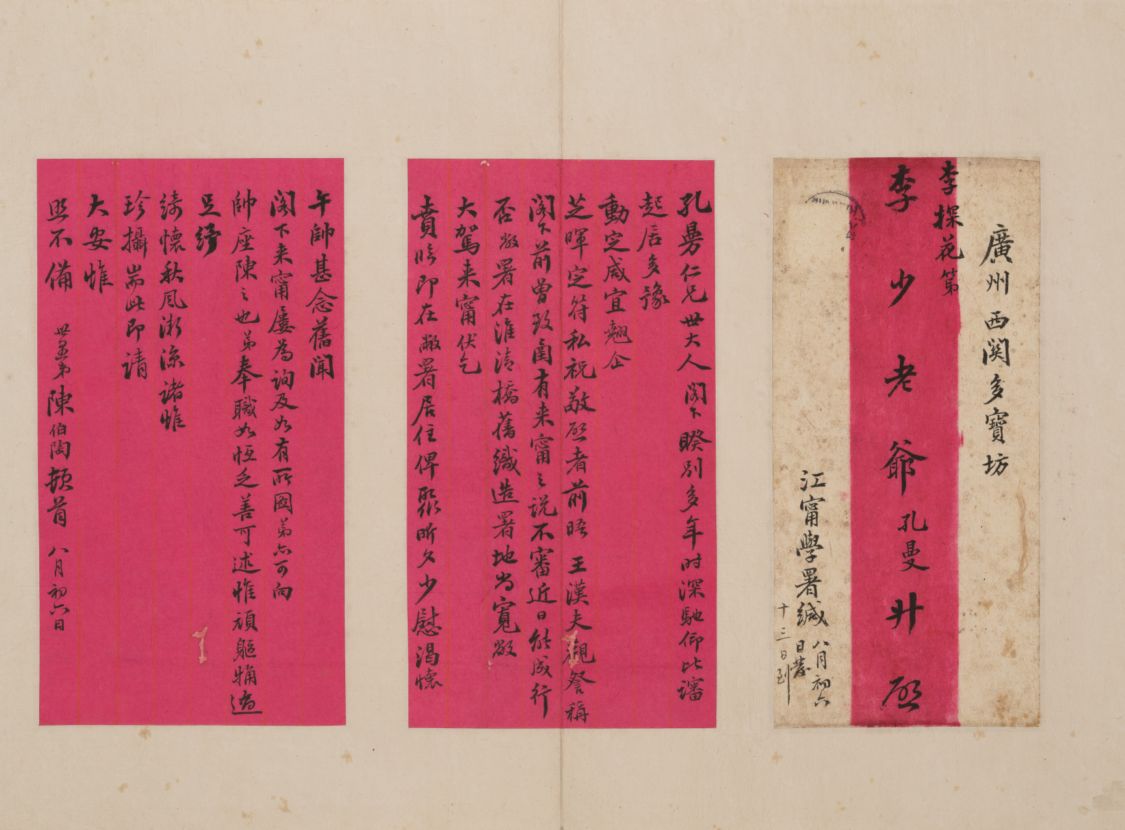 廣州西関多寶坊
李探花第
李少老爺孔曼升啟
江甯學署緘八月初六
日發
十三日到
孔曼仁兄世大人閣下睽別多年時深馳仰比審
起居多豫
動定咸宜翹企
芝暉定符私祝敬啟者前晤王漢夫觀詧稱
閣下前曾致函有来甯之説不審近日能成行
否敝署在淮清橋舊織造署地尚寬敞
大駕来甯伏乞
賁臨即在敝署居住俾聚昕夕少慰渴懷
午帥甚念舊聞
閣下来甯屢為詢及如有所圖弟亦可向
帥座陳之也弟奉職如恒乏善可述惟頑軀犕適
足紓
綺懷秋風漸涼諸惟
珍攝耑此即請
大安惟
照不備
世愚弟陳伯陶頓首八月初六日